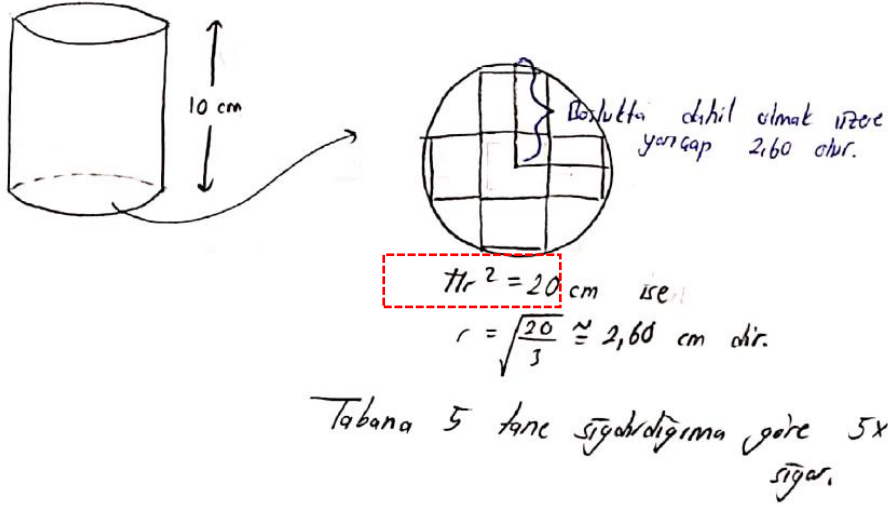 10 cm
Boşlukta dahil olmak üzere
yarıçap 2,60 olur.
πr² = 20 cm ise
r = √(20/3) ≅ 2,60 cm dir.
Tabana 5 tane sığdırdığıma göre 5x
sığar.